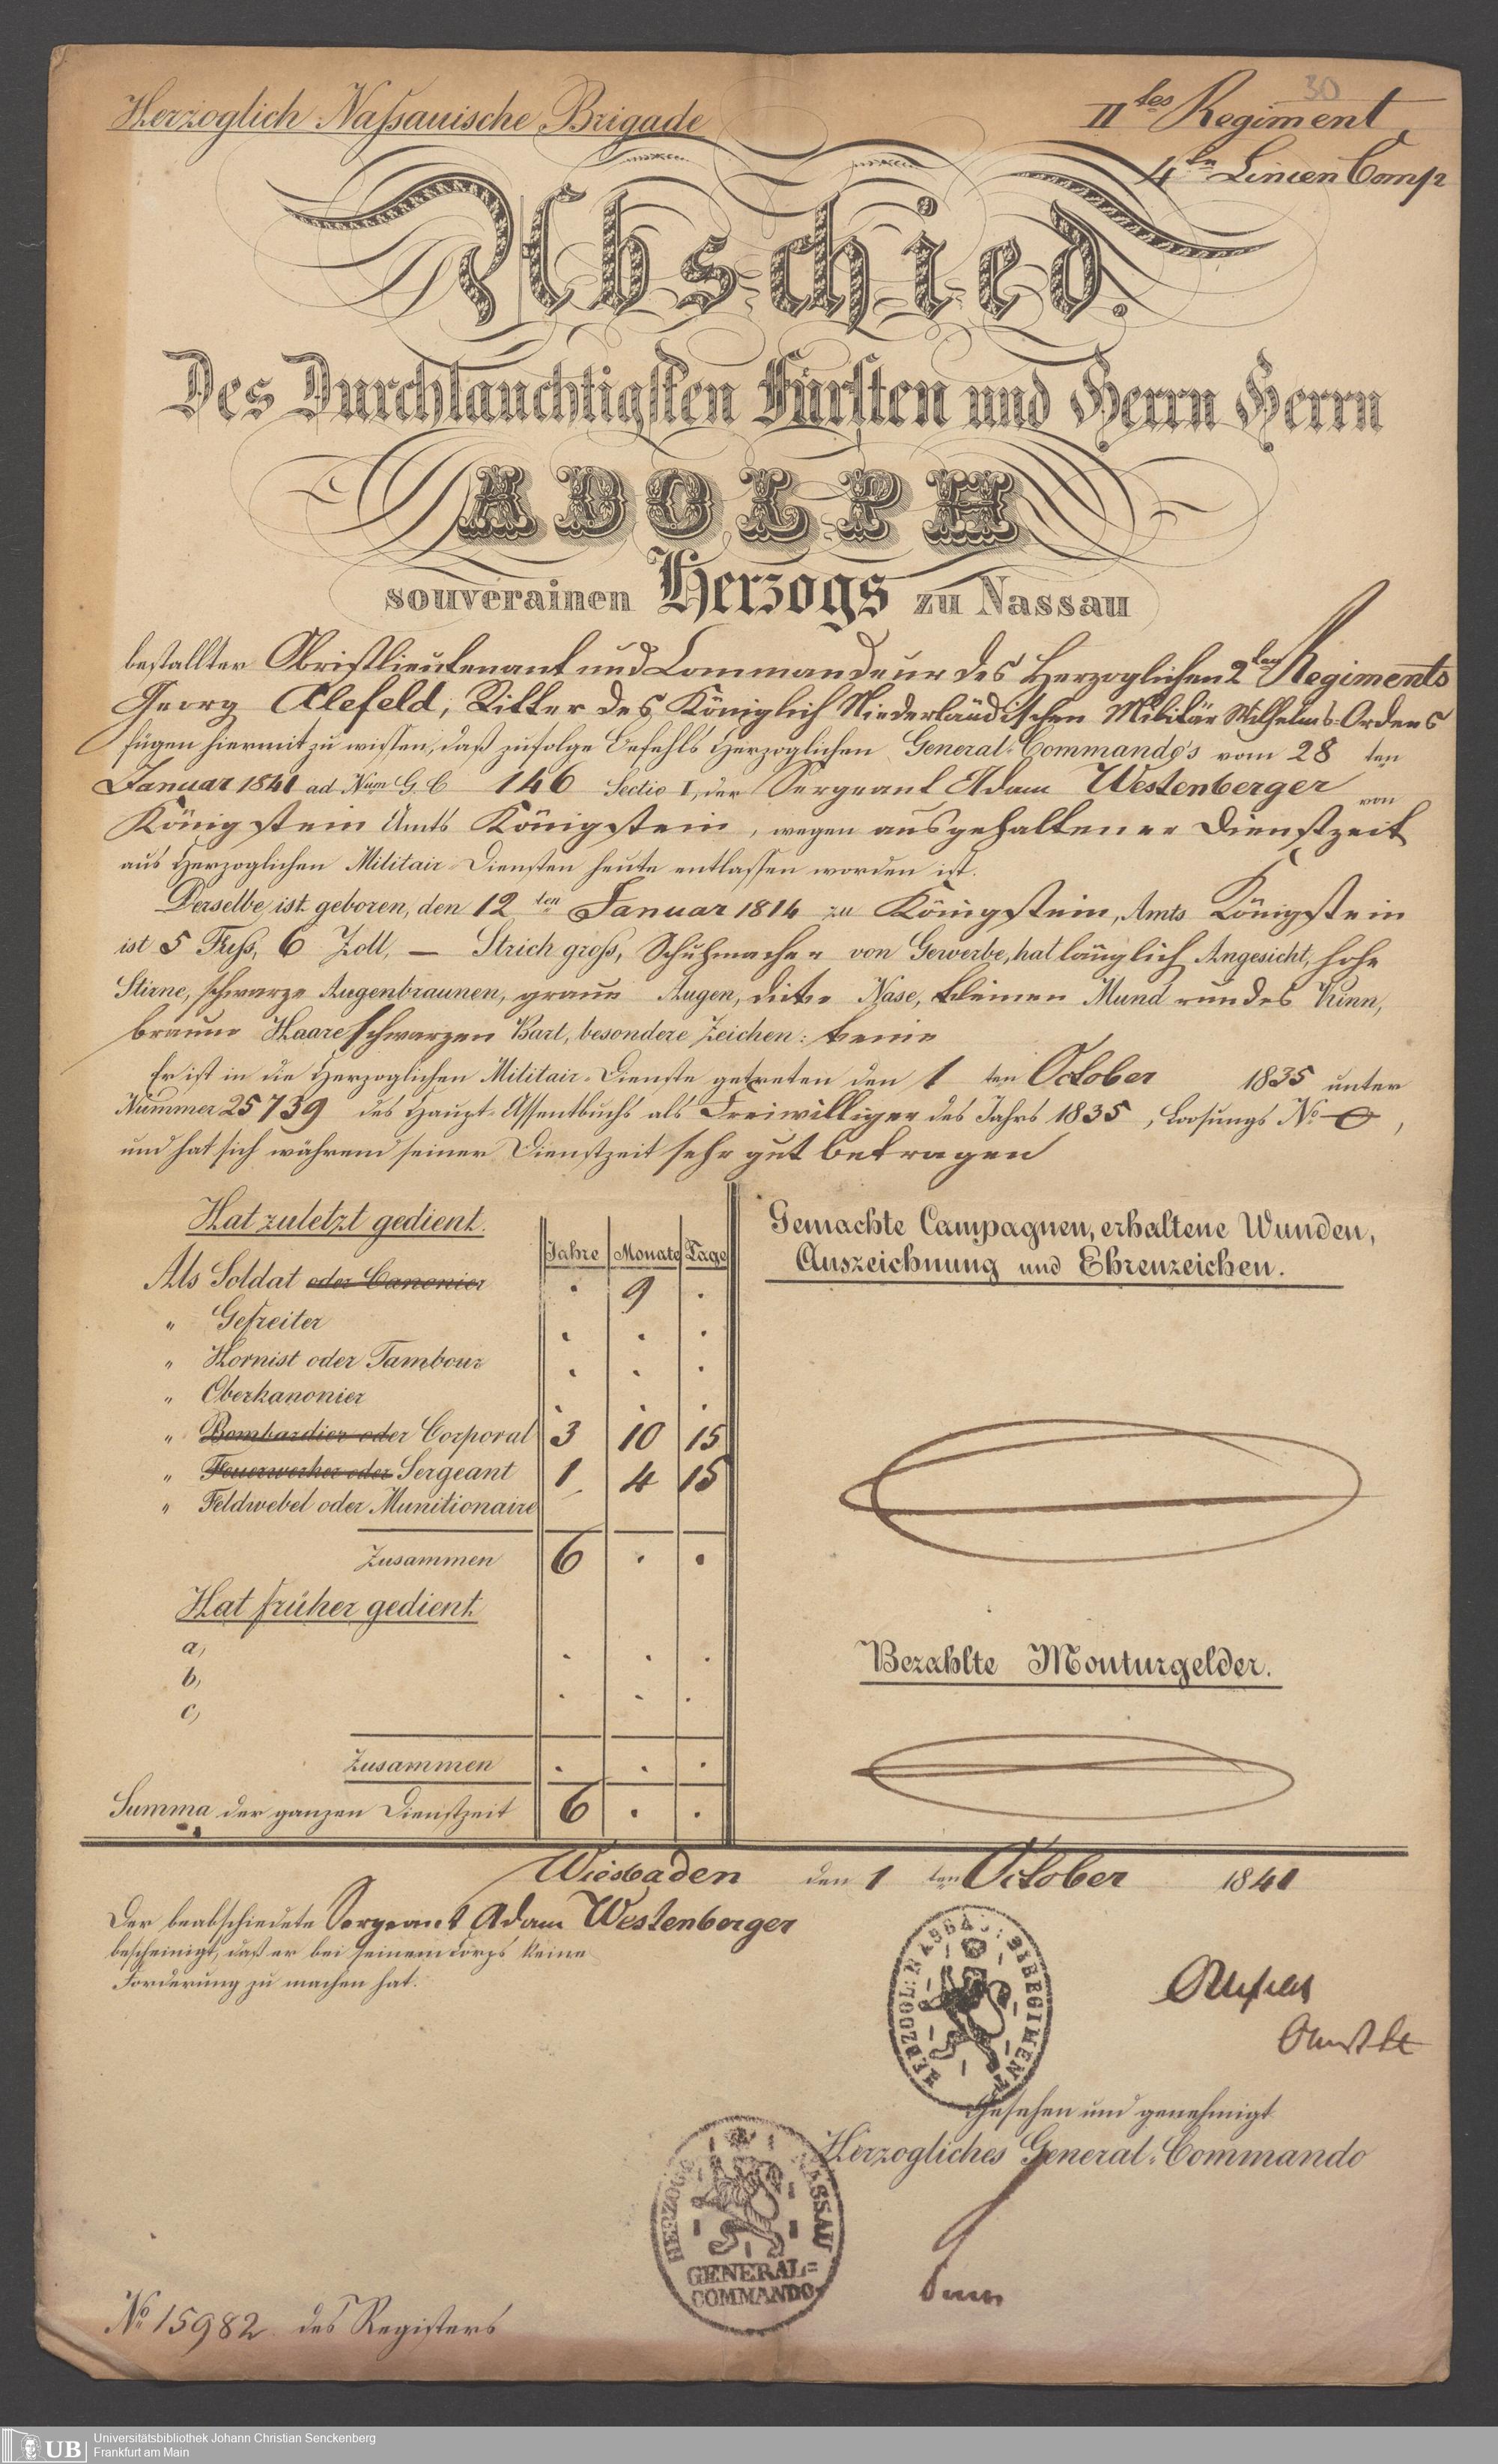 30
Herzoglich Nassauische Brigade
II tes Regiment
4 te Linien Comp
Abschied.
Des Durchlauchtigsten Fürsten und Herrn Herrn
ADOLPH
souverainen Herzogs zu Nassau
bestallter Obristlieutenant und Commandeur des Herzoglichen 2ten Regiments
Georg Alefeld, Ritter des Königlich Niederländischen Militär Wilhelms-Ordens
fügen hiermit zu wissen, daß zufolge Befehls Herzoglichen General-Commando's vom 28 ten
Januar 1841 ad Num G. C 146 Sectio I, der Sergeant Adam Westenberger von
Königstein Amts Königstein, wegen ausgehaltener Dienstzeit
aus Herzoglichen Militair Diensten heute entlassen worden ist.
Derselbe ist geboren, den 12 ten Januar 1814 zu Königstein, Amts Königstein
ist 5 Fuß, 6 Zoll, — Strich groß, Schuhmacher von Gewerbe, hat länglich Angesicht, hohe
Stirne, schwarze Augenbraunen, graue Augen, dicke Nase, kleinen Mund rundes Kinn,
braune Haare schwarzen Bart, besondere Zeichen: keine
Er ist in die Herzoglichen Militair-Dienste getreten den 1 ten October 1835 unter
Nummer 25739 des Haupt-Assentbuchs als Freiwilliger des Jahrs 1835, Loosungs No 0,
und hat sich während seiner Dienstzeit sehr gut betragen
Hat zuletzt gedient.
Jahre Monate Tage
Als Soldat oder Canonier . 9 .
" Gefreiter . . .
" Hornist oder Tambour . . .
" Oberkanonier . . .
" Bombardier oder Corporal 3 10 15
" Feuerwerker oder Sergeant 1 4 15
" Feldwebel oder Munitionaire
Zusammen 6 . .
Hat früher gedient.
a, . . .
b,
c, . . .
Zusammen . . .
Summa der ganzen Dienstzeit 6 . .
Gemachte Campagnen, erhaltene Wunden,
Auszeichnung und Ehrenzeichen.
Bezahlte Monturgelder.
Wiesbaden den 1 ten October 1841
Der beabschiedete Sergeant Adam Westenberger
bescheinigt, daß er bei seinem Corps keine
Forderung zu machen hat.
HERZOGL: NASSAU: 2T REGIMENT
Alefeld
Gesehen und genehmigt
Herzogliches General-Commando
HERZOGL NASSAU
GENERAL=
COMMANDO
No 15982 des Registers
UB
Universitätsbibliothek Johann Christian Senckenberg
Frankfurt am Main